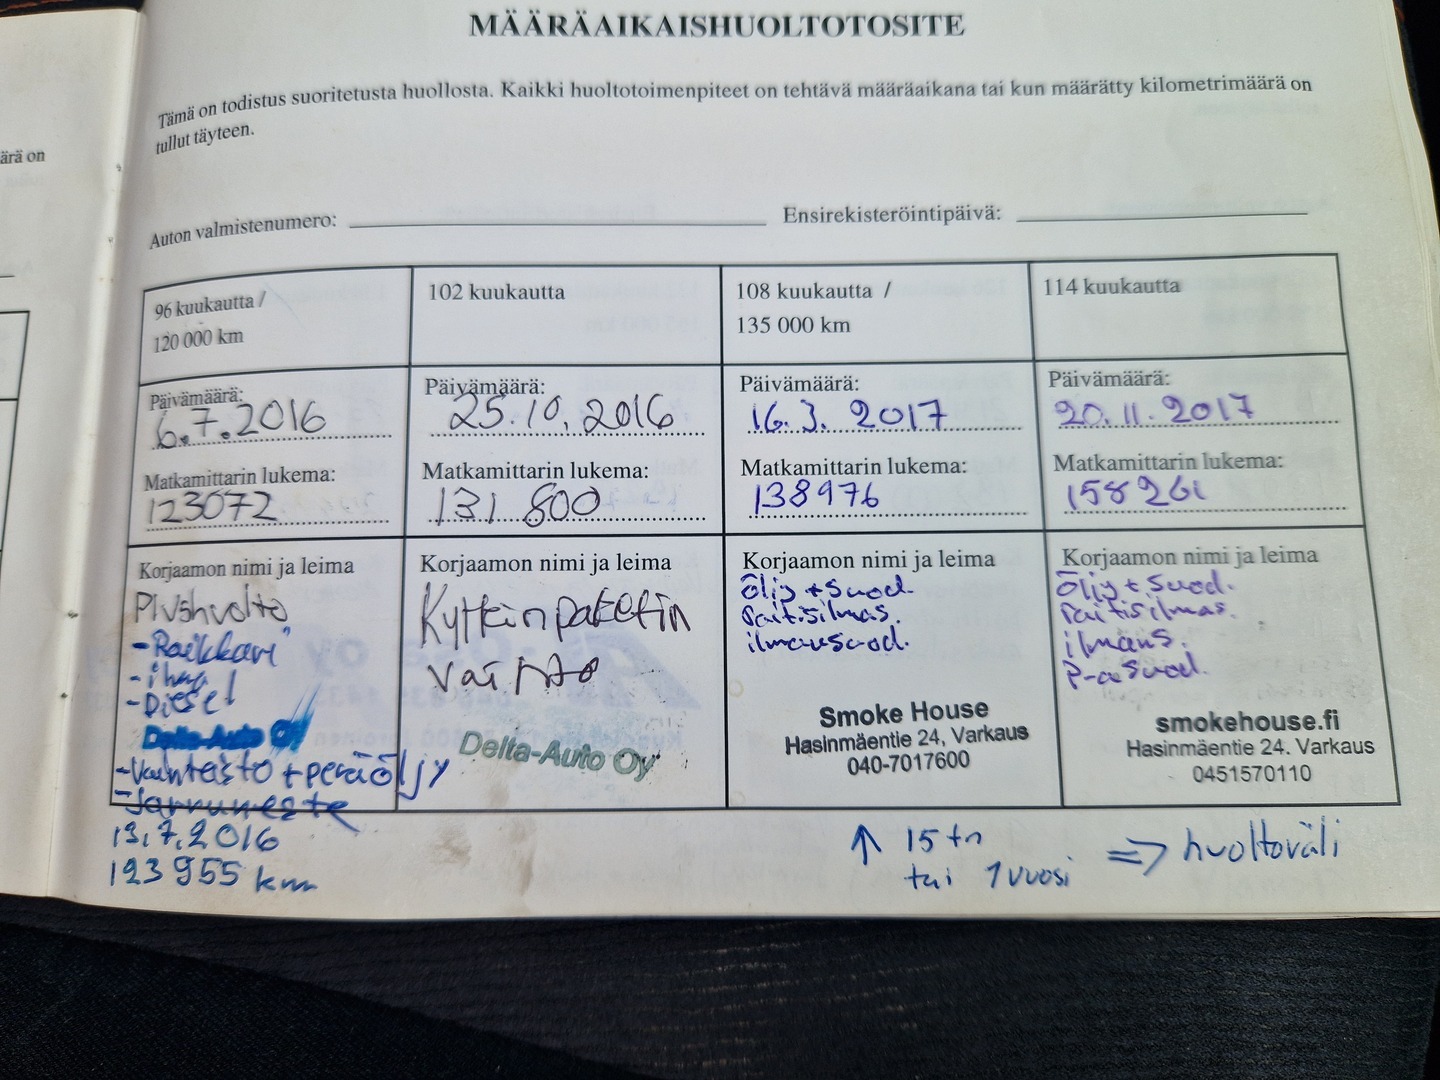 MÄÄRÄAIKAISHUOLTOTOSITE
Tämä on todistus suoritetusta huollosta. Kaikki huoltotoimenpiteet on tehtävä määräaikana tai kun määrätty kilometrimäärä on
tullut täyteen.
ärä on
Auton valmistenumero:
Ensirekisteröintipäivä:
96 kuukautta /
120 000 km
Päivämäärä:
6.7.2016
Matkamittarin lukema:
123072
Korjaamon nimi ja leima
Plushuolto
-Raikkari
-ilma
-Diesel
Delta-Auto Oy
-Vaihteisto + peräöljy
-Jarruneste
13.7.2016
123 955 km
102 kuukautta
Päivämäärä:
25.10.2016
Matkamittarin lukema:
131 800
Korjaamon nimi ja leima
Kytkinpaketin
vaihto
Delta-Auto Oy
108 kuukautta /
135 000 km
Päivämäärä:
16.3. 2017
Matkamittarin lukema:
138976
Korjaamon nimi ja leima
Öljy + Suod.
Raitisilmas.
ilmansuod.
Smoke House
Hasinmäentie 24, Varkaus
040-7017600
↑ 15 tn
tai 1 vuosi
=> huoltoväli
114 kuukautta
Päivämäärä:
20.11.2017
Matkamittarin lukema:
158261
Korjaamon nimi ja leima
Öljy + Suod.
Raitisilmas.
ilmans.
p-aSuod.
smokehouse.fi
Hasinmäentie 24. Varkaus
0451570110